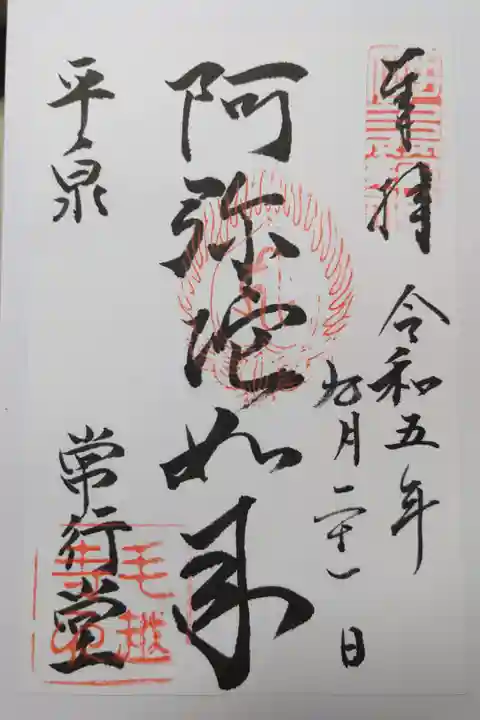 奉拝
令和五年
九月二十一日
阿弥陀如来
平泉
常行堂
毛越